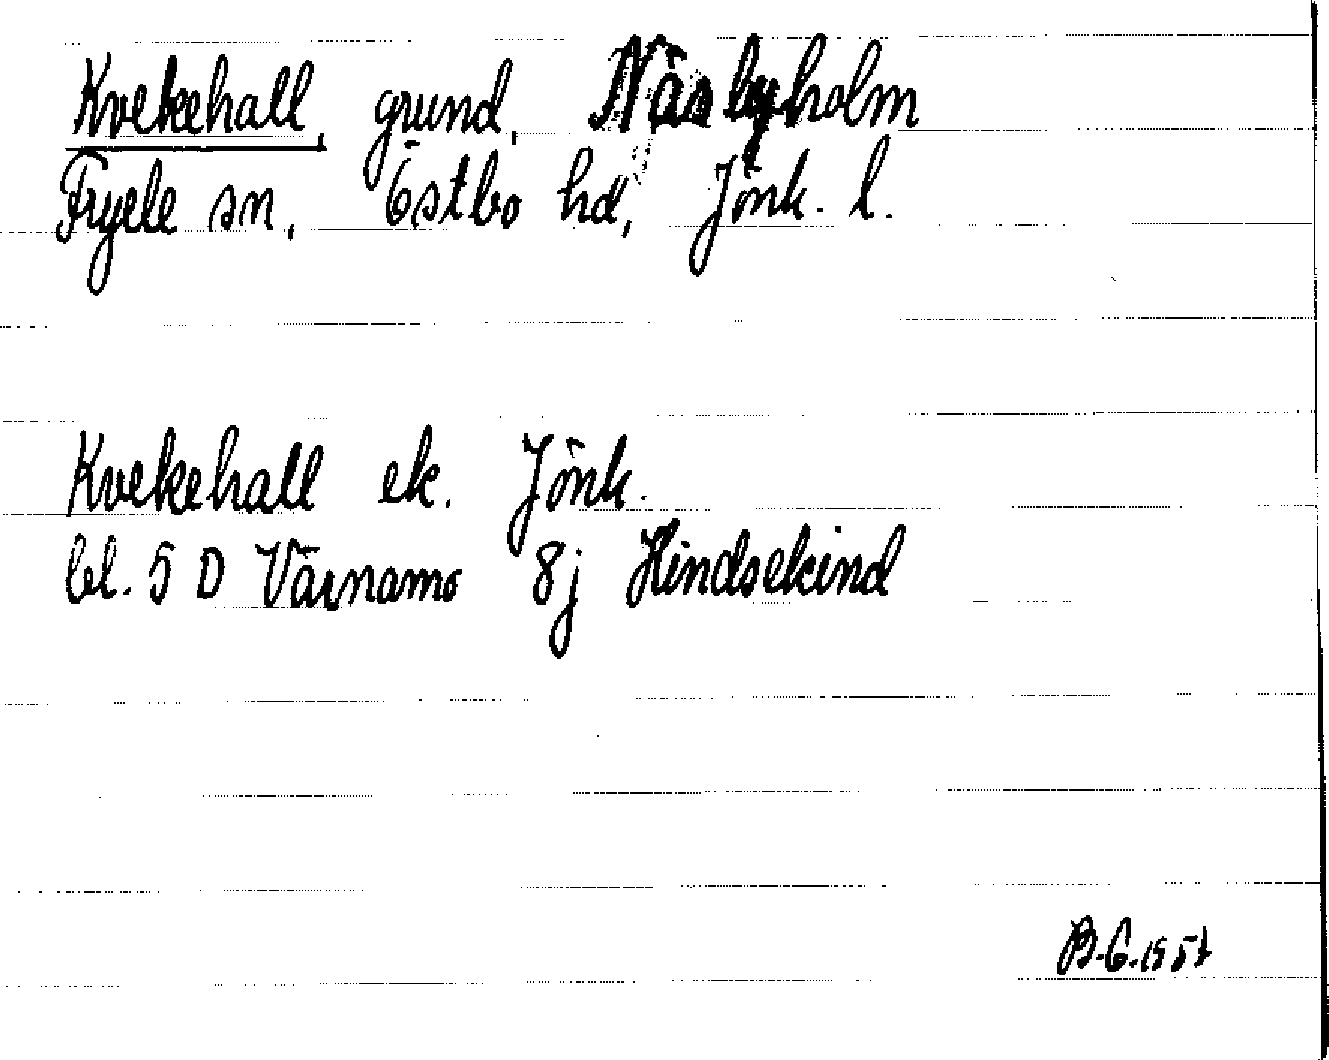 Kvekehall, grund, Näsbyholm
Fryele sn, Östbo hd, Jönk. l.
Kvekehall ek. Jönk.
bl. 5 D Värnamo 8j Hindsekind
B.G. 1957